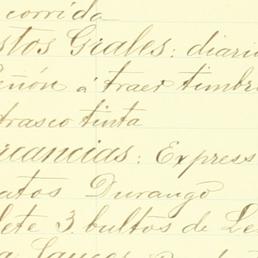 corrida
stos Grales: diario
eñón á traer timbre
frasco tinta
rcancias: Express
atos Durango
lete 3. bultos de Le